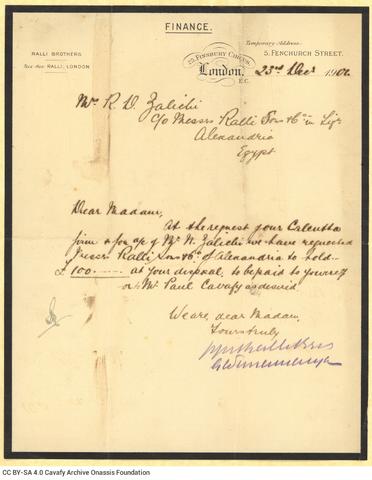 FINANCE.
RALLI BROTHERS
RALLI, LONDON
25, FINSBURY CIRCUS,
London,
E.C.
Temporary Address:-
5, FENCHURCH STREET.
23rd Decr 190
Mrs R. D. Zalichi
c/o Messrs Ralli Sons & Co in Liqn
Alexandria
Egypt
Dear Madam,
At the request of our Calcutta
firm & for a/c of Mr N. Zalichi we have requested
Messrs Ralli Sons & Co of Alexandria to hold
£100.--- at your disposal, to be paid to yourself
or Mr Paul Cavafy as desired
We are, dear Madam,
Yours truly
CC BY-SA 4.0 Cavafy Archive Onassis Foundation